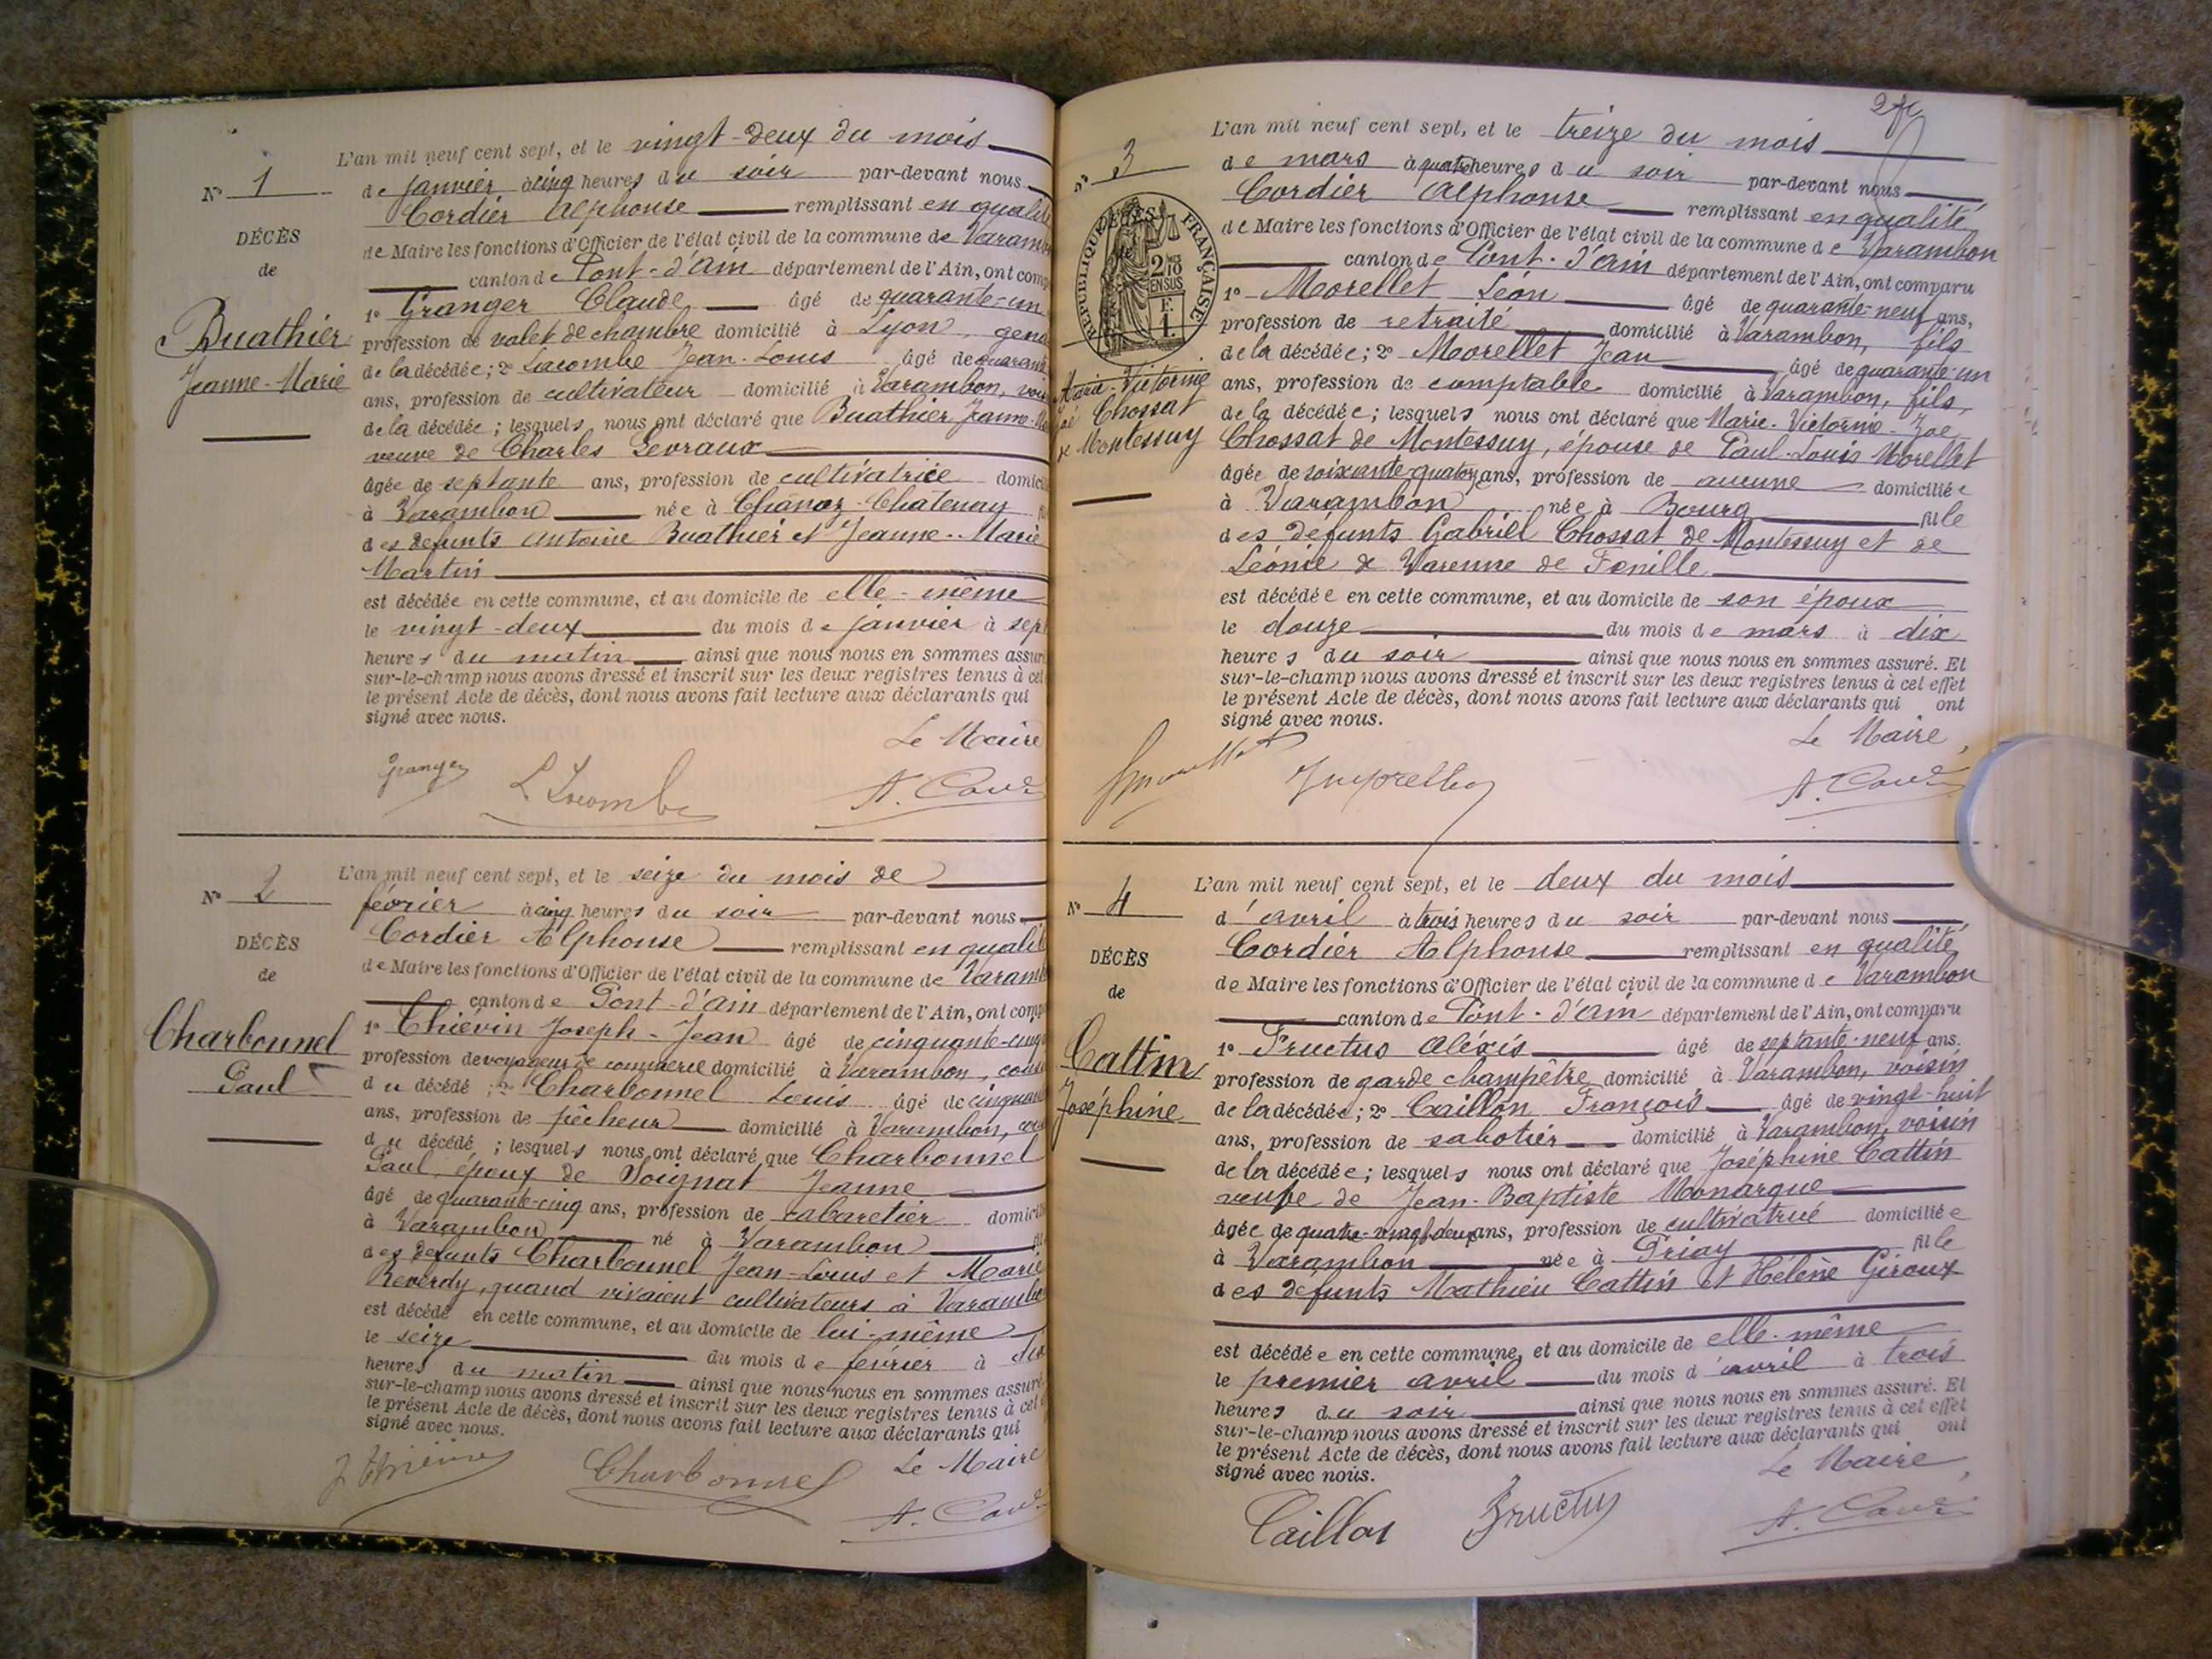 N° 1
DÉCÈS
de
Buathier
Jeanne-Marie
L'an mil neuf cent sept, et le vingt-deux du mois
de janvier à cinq heures du soir par-devant nous
Cordier Alphonse remplissant en qualité
de Maire les fonctions d'Officier de l'état civil de la commune de Varambon
canton de Pont-d'Ain département de l'Ain, ont comp
1° Granger Claude âgé de quarante-un
profession de valet de chambre domicilié à Lyon, gend
de la décédée; 2° Lacombe Jean-Louis âgé de quarante
ans, profession de cultivateur domicilié à Varambon, vois
de la décédée; lesquels nous ont déclaré que Buathier Jeanne-Ma
veuve de Charles
âgée de septante ans, profession de cultivatrice domici
à Varambon née à Chanoz-Chatenay
des défunts Antoine Buathier et Jeanne-Marie
Martin
est décédée en cette commune, et au domicile de elle-même
le vingt-deux du mois de janvier à sept
heures du matin ainsi que nous nous en sommes assuré
sur-le-champ nous avons dressé et inscrit sur les deux registres tenus à cet
le présent Acte de décès, dont nous avons fait lecture aux déclarants qui
signé avec nous.
Le Maire
Granger
N° 2
DÉCÈS
de
Charbonnel
Paul
L'an mil neuf cent sept, et le seize du mois de
février à cinq heures du soir par-devant nous
Cordier Alphonse remplissant en qualité
de Maire les fonctions d'Officier de l'état civil de la commune de Varamb
canton de Pont-d'Ain département de l'Ain, ont comp
1° Thiévin Joseph-Jean âgé de cinquante-cinq
profession de voyageur de commerce domicilié à Varambon, cous
du décédé; 2° Charbonnel Louis âgé de cinquan
ans, profession de pêcheur domicilié à Varambon, cou
du décédé; lesquels nous ont déclaré que Charbonnel
Paul, époux de Soignat Jeanne
âgé de quarante-cinq ans, profession de cabaretier domicil
à Varambon né à Varambon
des défunts Charbonnel Jean-Louis et Marie
Reverdy, quand vivaient cultivateurs à Varambo
est décédé en cette commune, et au domicile de lui-même
le seize du mois de février à dix
heures du matin ainsi que nous nous en sommes assuré
sur-le-champ nous avons dressé et inscrit sur les deux registres tenus à cet
le présent Acte de décès, dont nous avons fait lecture aux déclarants qui
signé avec nous.
Le Maire
Charbonnel
N° 3
RÉPUBLIQUE FRANÇAISE
DÉCÈS
de
2/10 EN SUS
F. 1.
Marie-Victorine
Zoé Chossat
de Montessuy
L'an mil neuf cent sept, et le treize du mois
de mars à quatre heures du soir par-devant nous
Cordier Alphonse remplissant en qualité
de Maire les fonctions d'Officier de l'état civil de la commune de Varambon
canton de Pont-d'Ain département de l'Ain, ont comparu
1° Morellet Léon âgé de quarante-neuf ans,
profession de retraité domicilié à Varambon, fils
de la décédée; 2° Morellet Jean âgé de quarante-un
ans, profession de comptable domicilié à Varambon, fils,
de la décédée; lesquels nous ont déclaré que Marie-Victorine-Zoé
Chossat de Montessuy, épouse de Paul-Louis Morellet
âgée de soixante-quatorze ans, profession de aucune domiciliée
à Varambon née à Bourg fille
des défunts Gabriel Chossat de Montessuy et de
Léonie de Varenne de Fenille
est décédée en cette commune, et au domicile de son époux
le douze du mois de mars à dix
heures du soir ainsi que nous nous en sommes assuré. Et
sur-le-champ nous avons dressé et inscrit sur les deux registres tenus à cet effet
le présent Acte de décès, dont nous avons fait lecture aux déclarants qui ont
signé avec nous.
Le Maire,
N° 4
DÉCÈS
de
Cattin
Joséphine
L'an mil neuf cent sept, et le deux du mois
d'avril à trois heures du soir par-devant nous
Cordier Alphonse remplissant en qualité
de Maire les fonctions d'Officier de l'état civil de la commune de Varambon
canton de Pont-d'Ain département de l'Ain, ont comparu
1° Fructus Alexis âgé de septante-neuf ans.
profession de garde champêtre domicilié à Varambon, voisin
de la décédée; 2° Caillon François âgé de vingt-huit
ans, profession de sabotier domicilié à Varambon, voisin
de la décédée; lesquels nous ont déclaré que Joséphine Cattin
veuve de Jean-Baptiste Monarque
âgée de quatre-vingt-deux ans, profession de cultivatrice domiciliée
à Varambon née à Priay fille
des défunts Mathieu Cattin et Hélène Giroux
est décédée en cette commune, et au domicile de elle-même
le premier avril du mois d'avril à trois
heures du soir ainsi que nous nous en sommes assuré. Et
sur-le-champ nous avons dressé et inscrit sur les deux registres tenus à cet effet
le présent Acte de décès, dont nous avons fait lecture aux déclarants qui ont
signé avec nous.
Le Maire,
Caillon Fructus